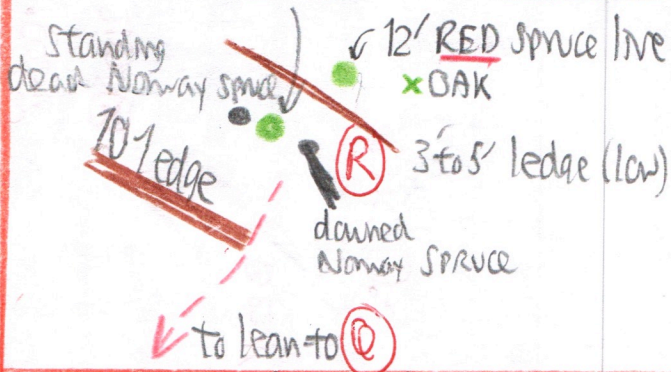 Standing
dead Norway spruce
12' RED spruce live
x OAK
10' ledge
R
3' to 5' ledge (low)
downed
Norway SPRUCE
to lean-to Q